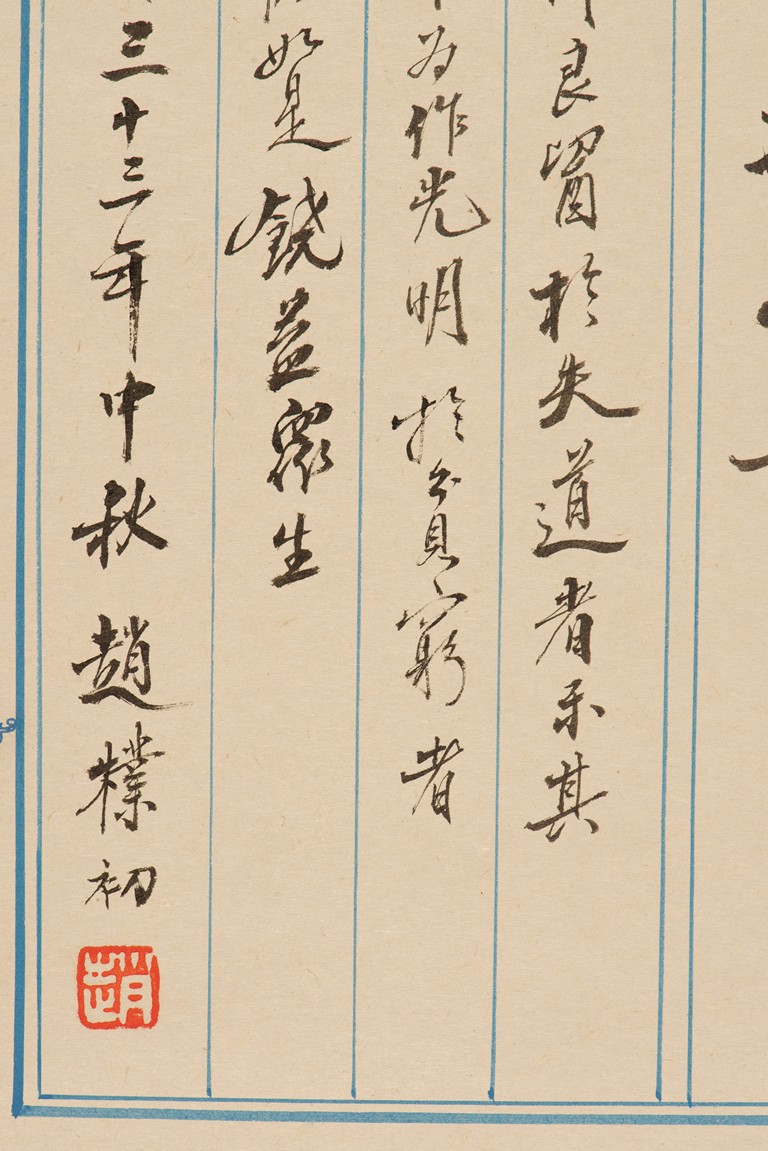 良醫於失道者示其
為作光明於貧窮者
如是饒益衆生
三十三年中秋趙樸初
趙